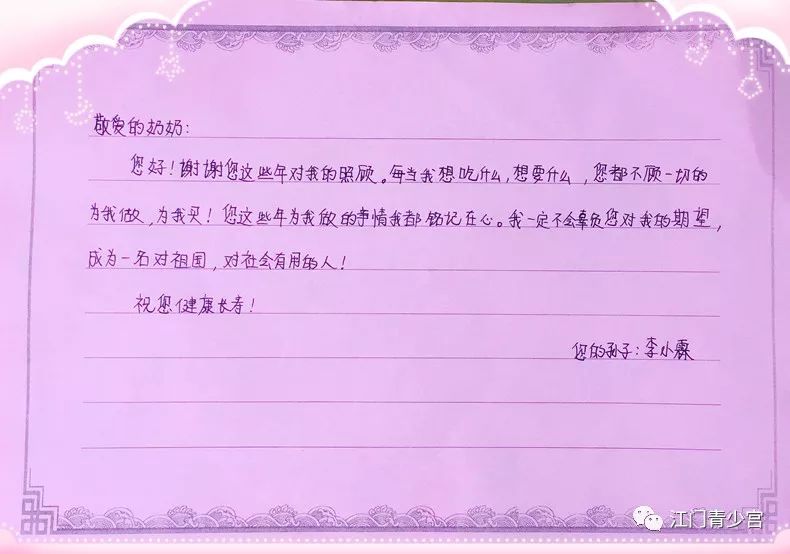 敬爱的奶奶：
您好！谢谢您这些年对我的照顾。每当我想吃什么，想要什么，您都不顾一切的
为我做，为我买！您这些年为我做的事情我都铭记在心。我一定不会辜负您对我的期望，
成为一名对祖国，对社会有用的人！
祝您健康长寿！
您的孙子：李小霖
江门青少宫